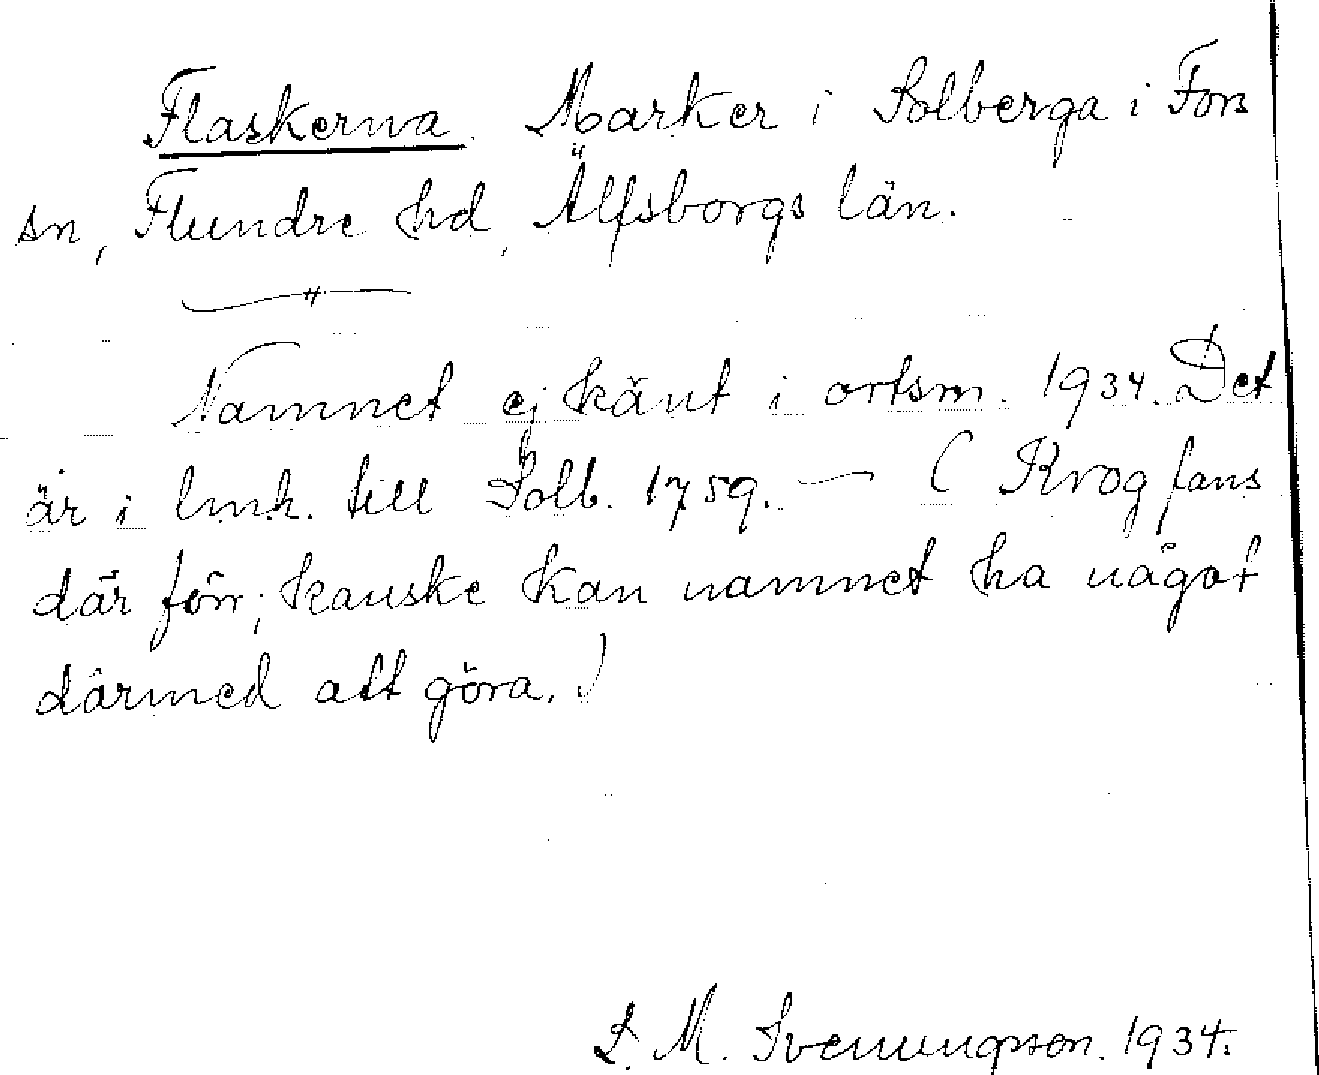 Flaskerna. Marker i Solberga i Fors
sn, Flundre hd, Älfsborgs län.
Namnet ej känt i ortsm. 1934. Det
är i lmh. till Solb. 1759. — (Krog fans
där förr; kanske kan namnet ha något
därmed att göra.)
S. M. Svenungsson. 1934.